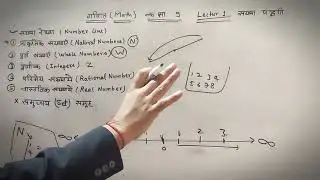 गणित (Math) कक्षा 9 Lecture 1 संख्या पद्धति
• संख्या रेखा (Number Line)
① प्राकृतिक संख्याएँ (Natural Numbers) N
② पूर्ण संख्याएँ (Whole Numbers) W
③ पूर्णांक (Integers) Z
④ परिमेय संख्याएँ (Rational Number)
⑤ वास्तविक संख्याएँ (Real Number)
× समुच्चय (Set) समूह
1 2 3 4
5 6 7 8
N
∞
0 1 2 3 ∞